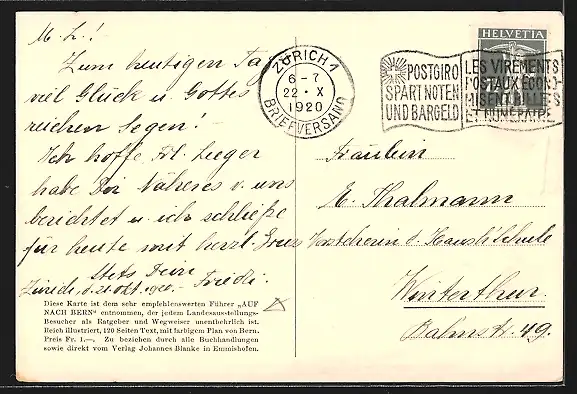 M. L.!
Zum heutigen Tag
viel Glück u. Gottes
reichen Segen! –
Ich hoffe, Frl.
habe Dir Näheres v. uns
berichtet u. ich schließe
für heute mit herzl. Gruss
Stets Deine
Zürich, d. 21. Okt. 1920. Friedi.
Diese Karte ist dem sehr empfehlenswerten Führer „AUF
NACH BERN" entnommen, der jedem Landesausstellungs-
Besucher als Ratgeber und Wegweiser unentbehrlich ist.
Reich illustriert, 120 Seiten Text, mit farbigem Plan von Bern.
Preis Fr. 1.—. Zu beziehen durch alle Buchhandlungen
sowie direkt vom Verlag Johannes Blanke in Emmishofen.
ZÜRICH 1
6-7
22·X
1920
BRIEFVERSAND
POSTGIRO
SPART NOTEN
UND BARGELD
LES VIREMENTS
POSTAUX ÉCONO-
MISENT BILLETS
ET NUMÉRAIRE
HELVETIA
Fräulein
E. Thalmann
Vorsteherin d. Haush. Schule
Winterthur
Bahnstr. 49.